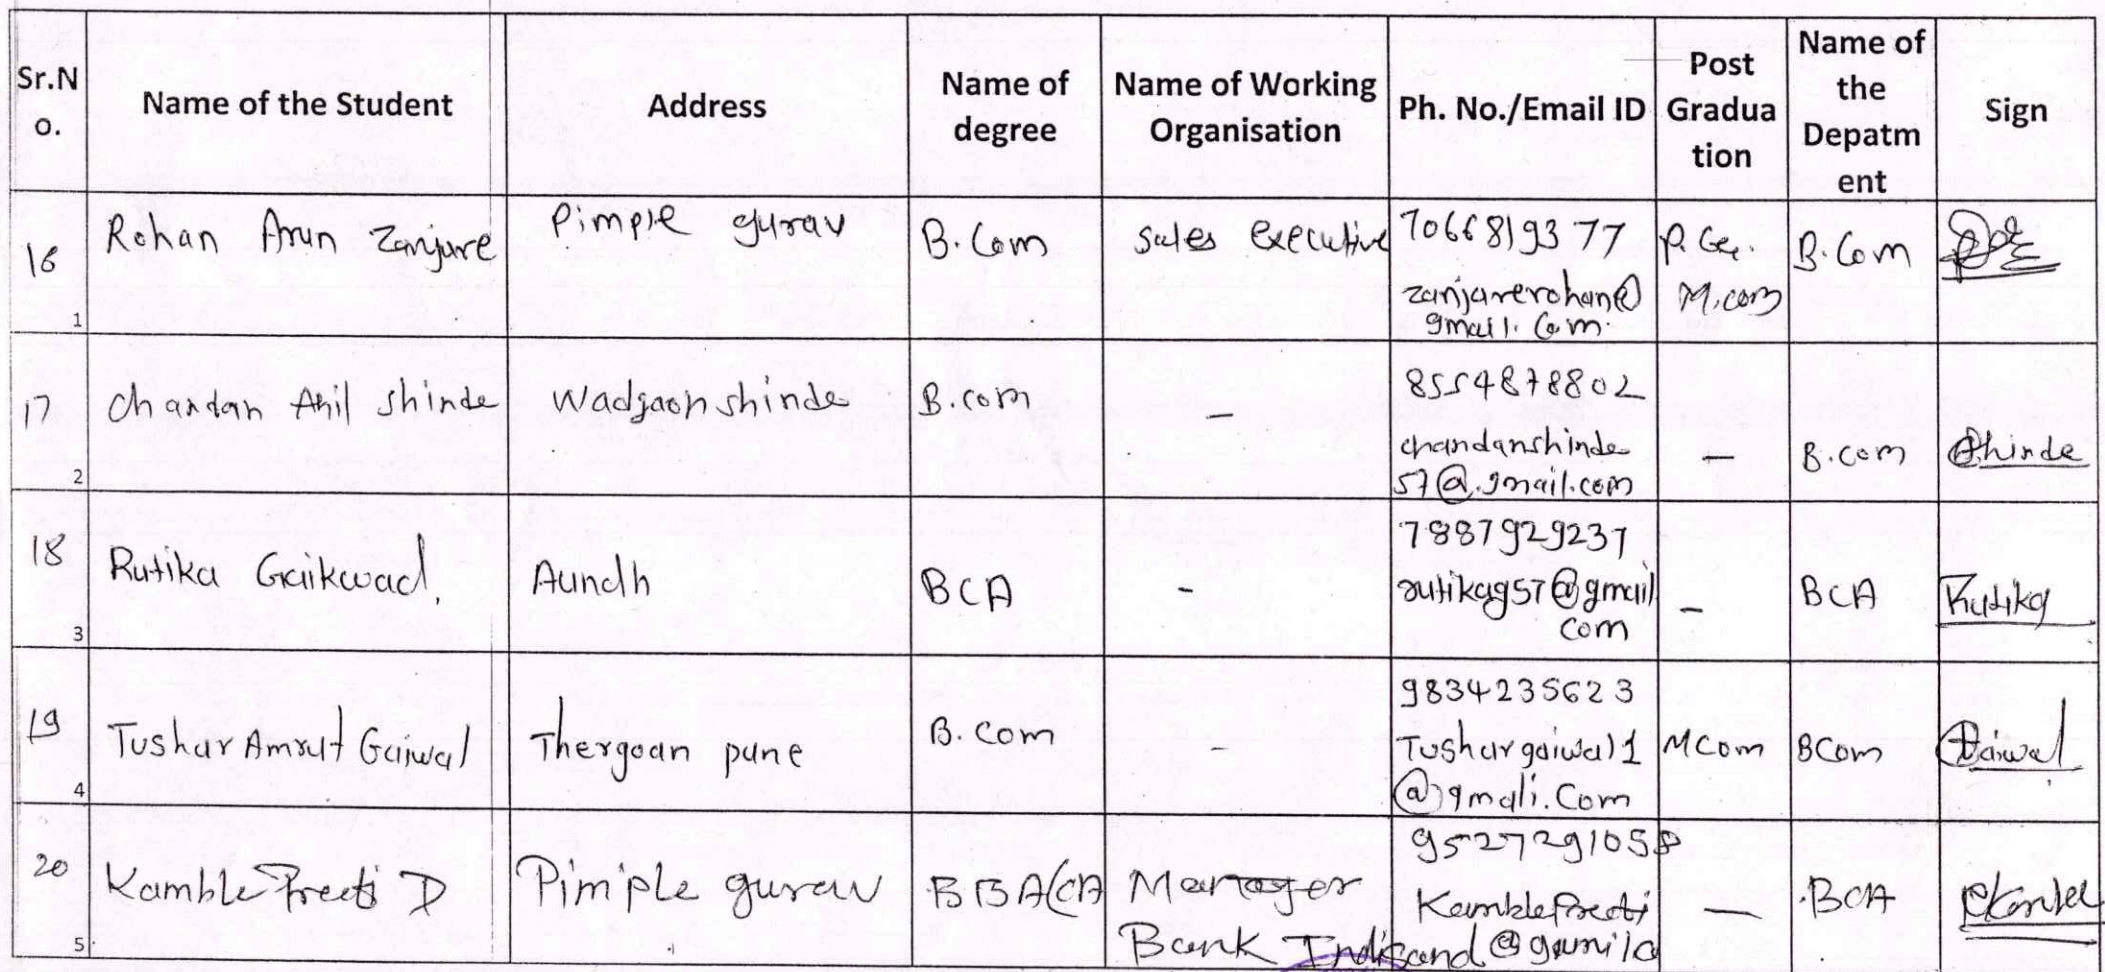 Sr.N
o.
Name of the Student
Address
Name of
degree
Name of Working
Organisation
Ph. No./Email ID
Post
Gradua
tion
Name of
the
Depatm
ent
Sign
16
1
Rohan Arun Zanjure
Pimple gurav
B.Com
Sales executive
7066819377
zanjarerohan@
gmail.com.
P.G.
M.com
B.Com
17
2
Chandan Anil Shinde
Wadgaon shinde
B.com
-
8554878802
chandanshinde
57@.gmail.com
-
B.com
Shinde
18
3
Rutika Gaikwad.
Aundh
BCA
-
7887929237
rutikag57@gmail
com
-
BCA
Rutika
19
4
Tushar Amrut Gaiwal
Thergoan pune
B.Com
-
9834235623
Tushargaiwal1
@gmali.Com
MCom
BCom
Gaiwal
20
5
Kamble Preeti D
Pimple gurav
BBA(CA
Manager
Bank
9527291058
KamblePreeti
-
BCA